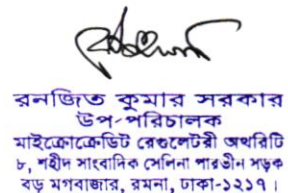 রনজিত কুমার সরকার
উপ-পরিচালক
মাইক্রোক্রেডিট রেগুলেটরী অথরিটি
৮, শহীদ সাংবাদিক সেলিনা পারভীন সড়ক
বড় মগবাজার, রমনা, ঢাকা-১২১৭।